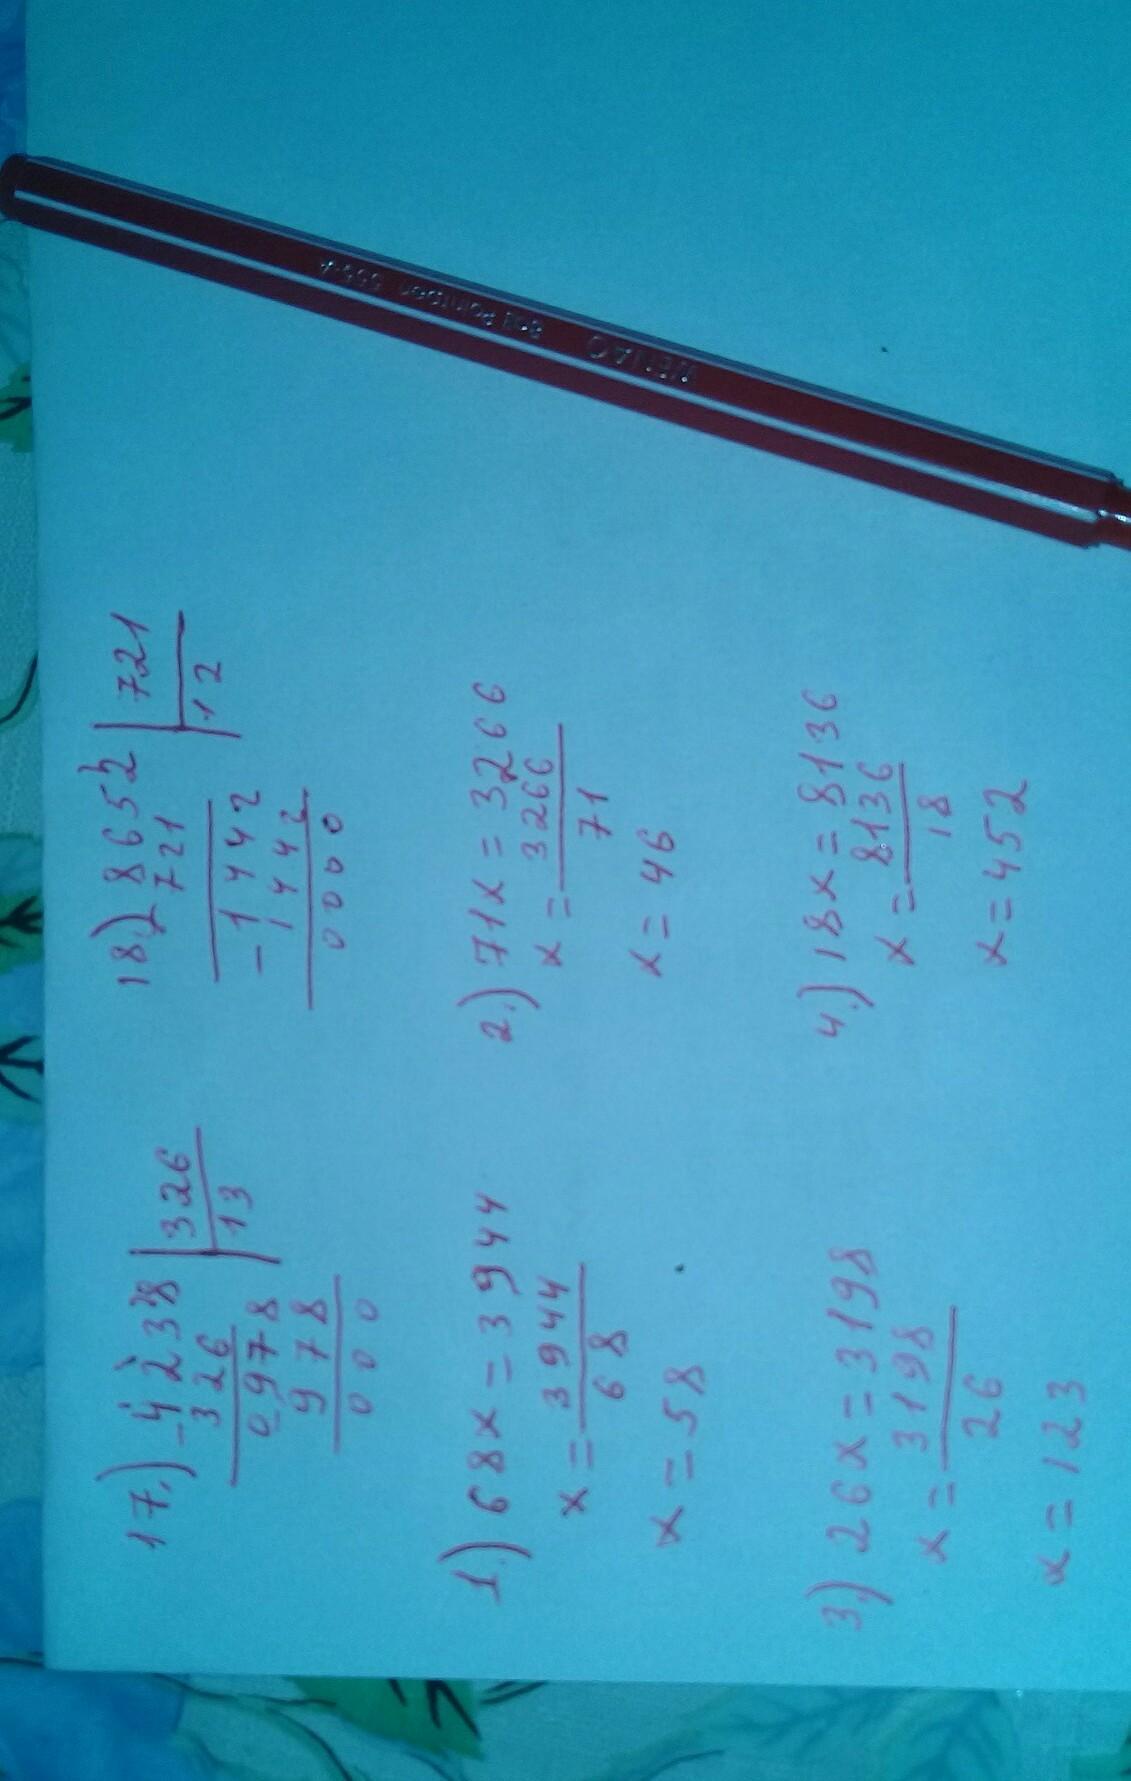 17.) -4238 | 326
326 | 13
0978
978
000
18.) 8652 | 721
721 | 12
-1442
1442
0000
1.) 68x = 3944
x = 3944
68
x = 58
2.) 71x = 3266
x = 3266
71
x = 46
3.) 26x = 3198
x = 3198
26
x = 123
4.) 18x = 8136
x = 8136
18
x = 452
Ball Pointpen 555-A